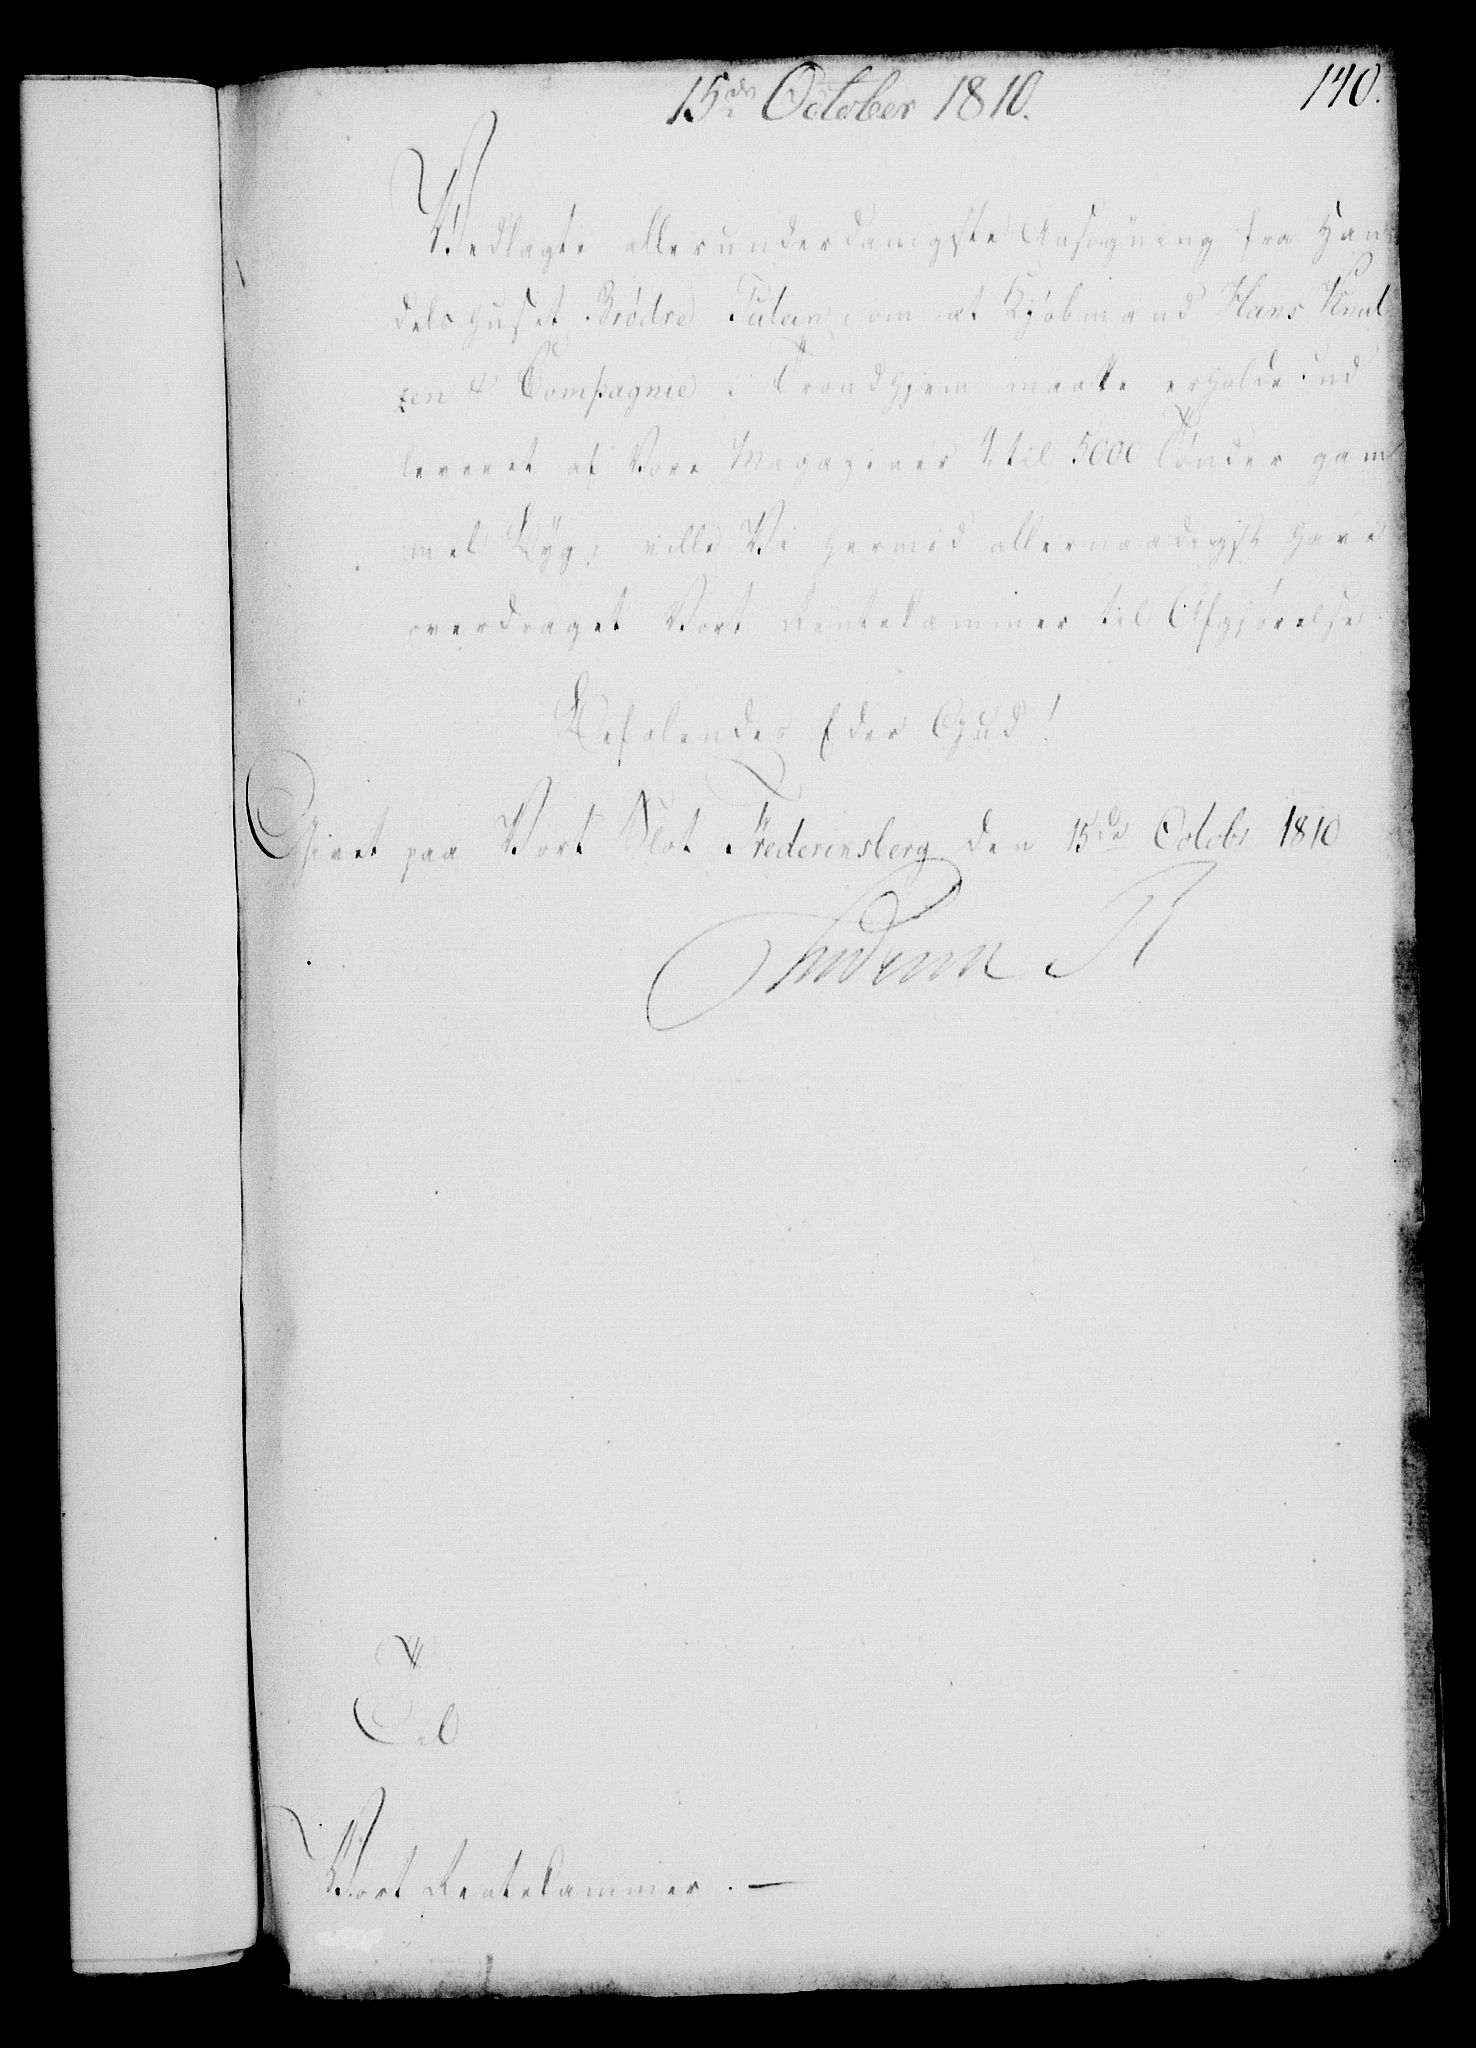 15de October 1810.
140.
Vedlagte allerunderdanigste Ansøgning fra Han
delshuset Brødre Tutein, om at Kjøbmand Hans Knud
zen & Compagnie i Trondhjem maatte erholde ind
leveret af Vore Magaziner 4 til 5000 Tønder gam
mel Ryg, ville Vi hermed allernaadigst have
overdraget Vort Rentekammer til Afgjørelse.
Befalendes Eder Gud!
Givet paa Vort Slot Frederiksberg den 15de Octobr 1810
Frederik R
Til
Vort Rentekammer. —